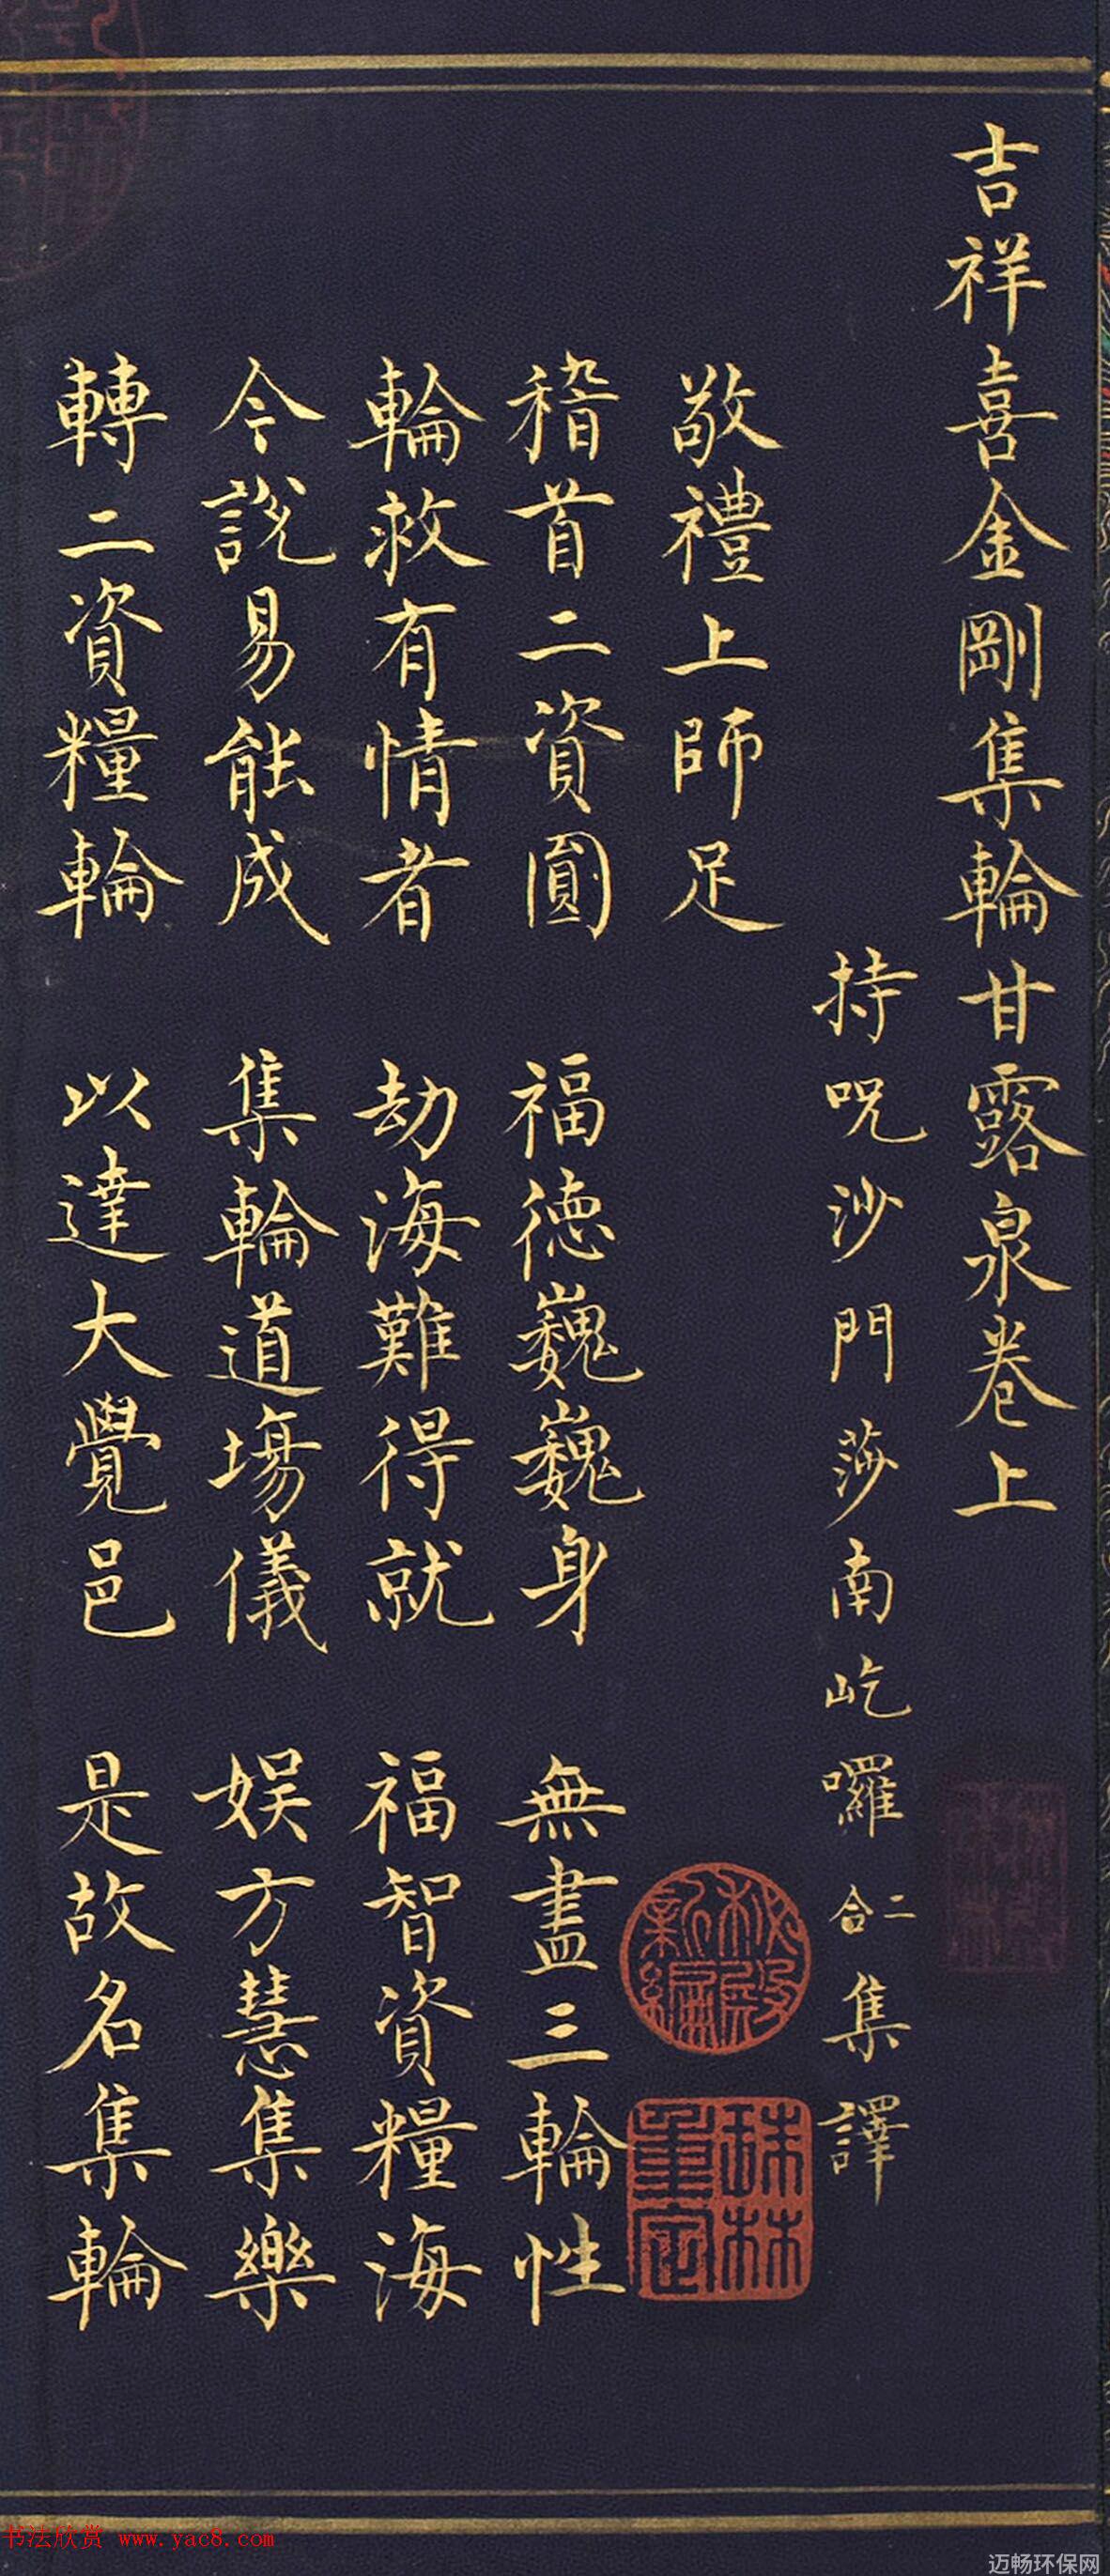 吉祥喜金剛集輪甘露泉卷上
持呪沙門莎南屹囉二合集譯
敬禮上師足
稽首二資圓 福德巍巍身 無盡三輪性
輪救有情者 劫海難得就 福智資糧海
今說易能成 集輪道場儀 娛方慧集樂
轉二資糧輪 以達大覺邑 是故名集輪
秘殿新編
珠林重定
书法欣赏 www.yac8.com
迈畅环保网